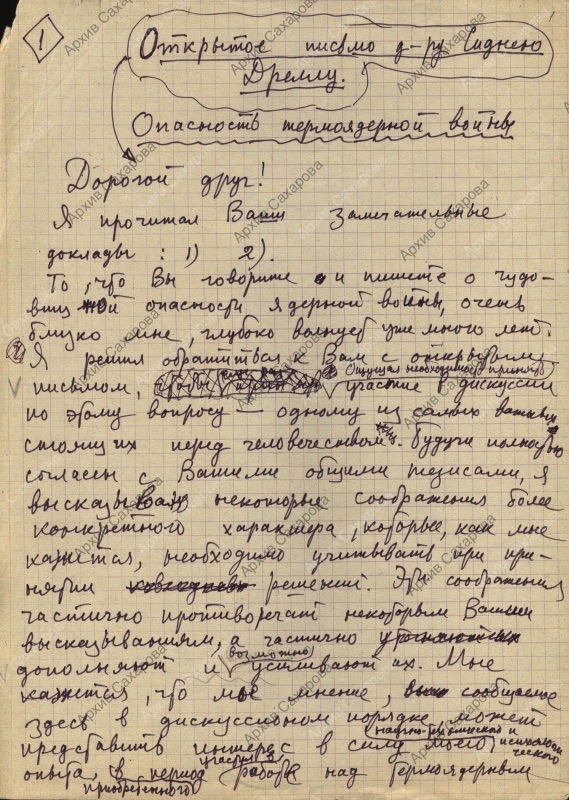 1
Открытое письмо д-ру Сиднею
Дреллу.
Опасность термоядерной войны
Дорогой друг!
Я прочитал Ваши замечательные
доклады: 1) 2).
То, что Вы говорите и пишете о чудо-
вищной опасности ядерной войны, очень
близко мне, глубоко волнует уже много лет.
Я решил обратиться к Вам с открытым
письмом, ощущая необходимость принять
участие в дискуссии
по этому вопросу – одному из самых важных
стоящих перед человечеством. Будучи полностью
согласен с Вашими общими тезисами, я
высказываю некоторые соображения более
конкретного характера, которые, как мне
кажется, необходимо учитывать при при-
нятии решений. Эти соображения
частично противоречат некоторым Вашим
высказываниям, а частично
дополняют и возможно усиливают их. Мне
кажется, что мое мнение, сообщаемое
здесь в дискуссионном порядке, может
представить интерес в силу моего научно-технической и
психологического
опыта, приобретенного в период участия в работе над термоядерным
Архив Сахарова